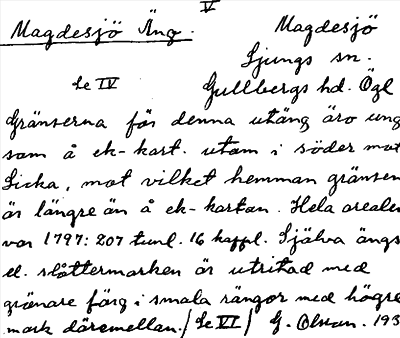 V
Magdesjö Äng. Magdesjö
Ljungs sn.
Se IV Gullbergs hd. Ögl
Gränserna för denna utäng äro ung
som å ek-kart. utom i söder mot
Sicka, mot vilket hemman gränsen
är längre än å ek-kartan. Hela arealen
var 1797: 207 tunl. 16 kappl. Själva ängs
el. slåttermarken är utritad med
grönare färg i smala rängor med högre
mark däremellan. / Se VI / G. Olson. 193